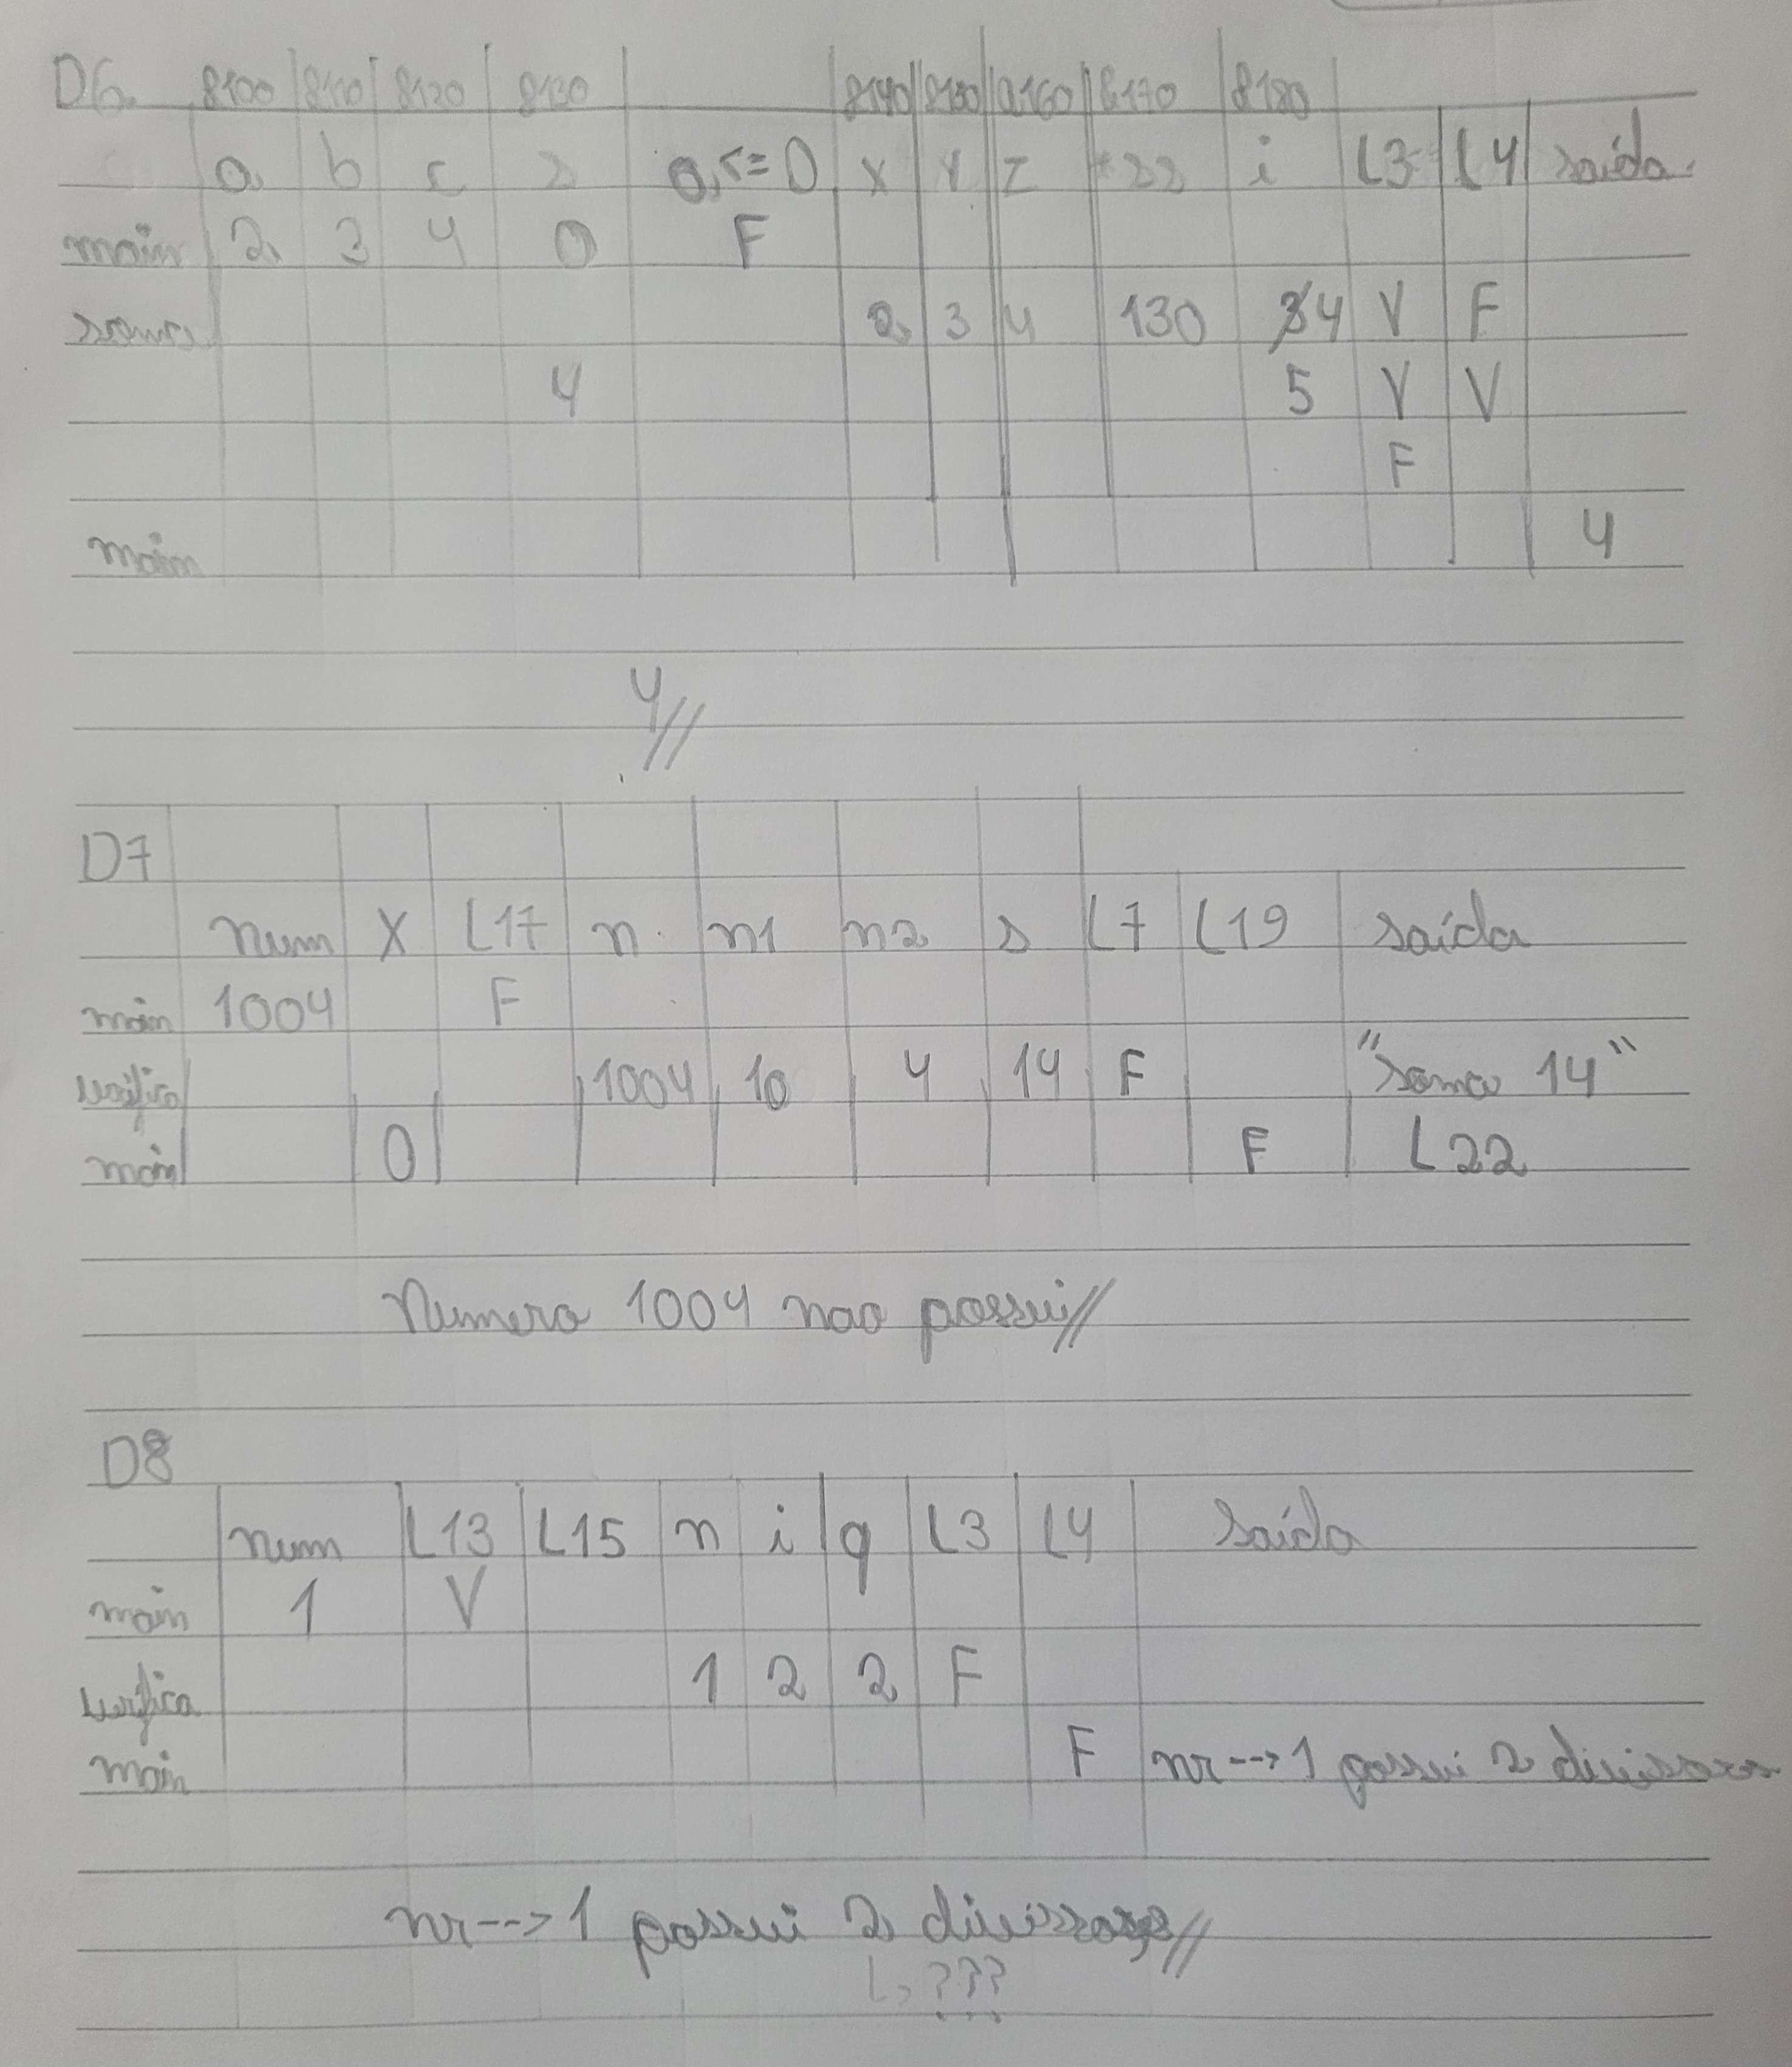 D6 8100 8110 8120 8130 8140 8150 8160 8170 8180
a b c s a<=0 x y z *ss i L3 L4 saída
main 2 3 4 0 F
soma 2 3 4 130 34 V F
4 5 V V
F
main 4
4//
D7
num X L17 n n1 n2 s L7 L19 saída
main 1004 F
verifica 1004 10 4 14 F "soma 14"
main 0 F L22
Numero 1004 nao possui//
D8
num L13 L15 n i q L3 L4 saída
main 1 V
verifica 1 2 2 F
main F nr--> 1 possui 2 divisores
nr--> 1 possui 2 divisores//
L> ???